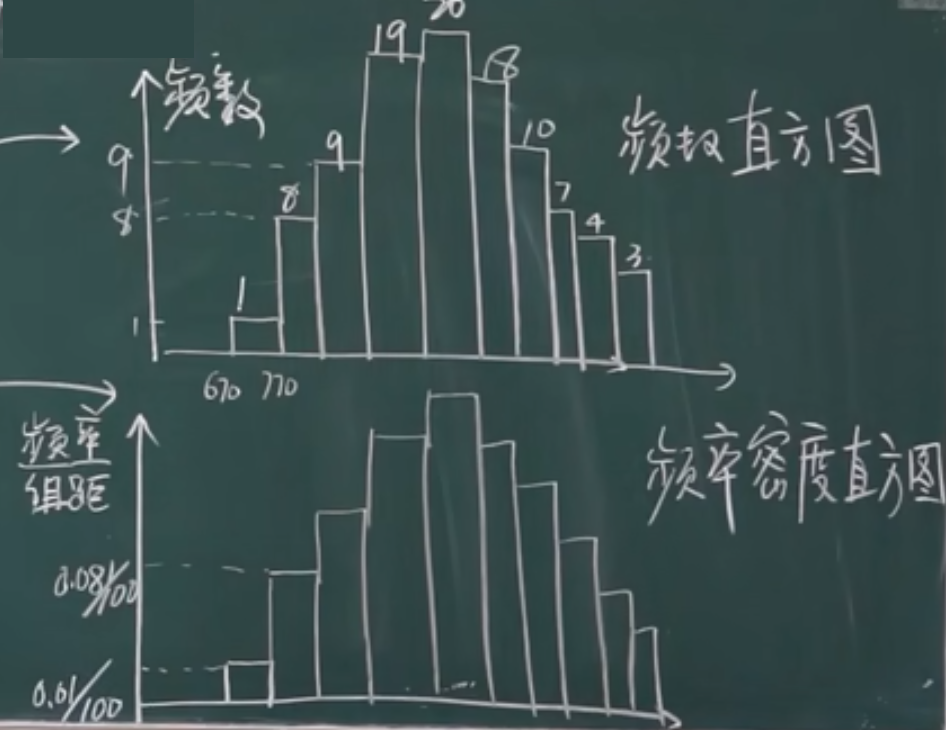 频数
19
18
9
9
10
8
8
7
4
3
1
1
670 770
频数直方图
频率
组距
0.08/100
0.01/100
频率密度直方图